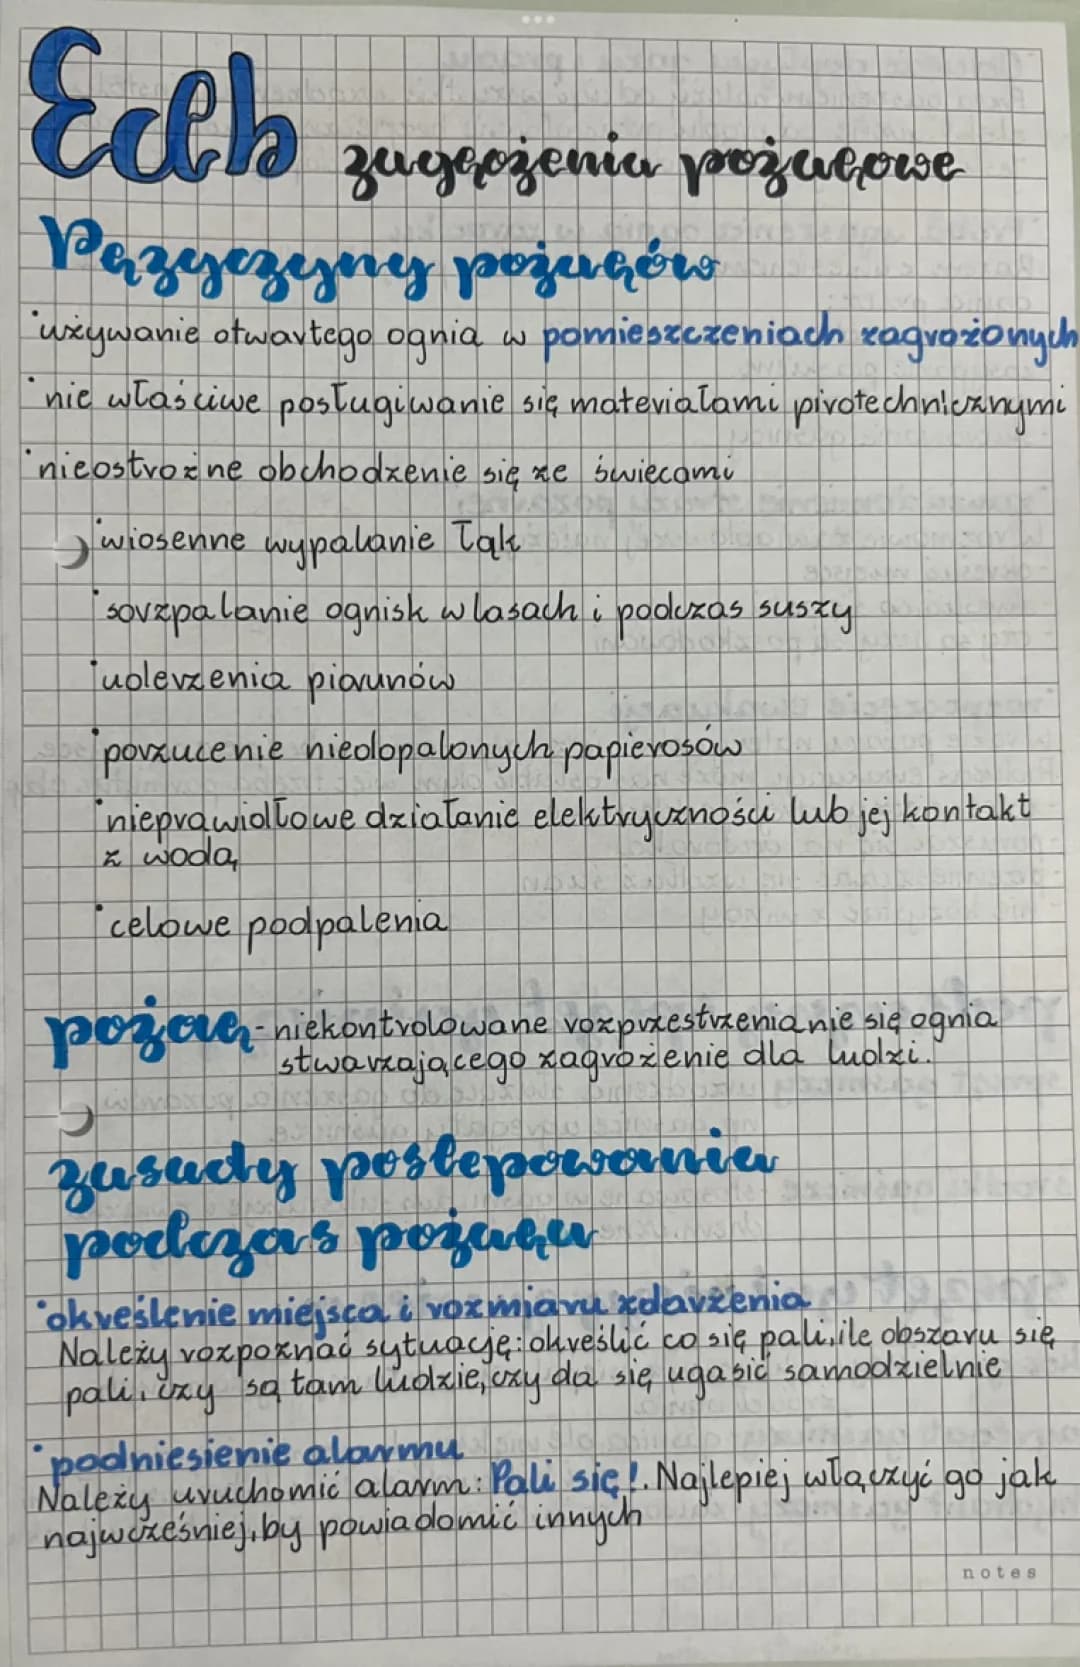 Edb zagrożenia pożarowe
Przyczyny pożarów
•używanie otwartego ognia w pomieszczeniach zagrożonych
•nie właściwe posługiwanie się materiałami pirotechnicznymi
•nieostrożne obchodzenie się ze świecami
•wiosenne wypalanie łąk
•sorzpalanie ognisk w lasach i podczas suszy
•uderzenia piorunów
•porzucenie niedopalonych papierosów
•nieprawidłowe działanie elektryczności lub jej kontakt
z wodą
•celowe podpalenia
pożar - niekontrolowane rozprzestrzenianie się ognia
stwarzającego zagrożenie dla ludzi.
zasady postepowania
podczas pożaru
•określenie miejsca i rozmiaru zdarzenia
Należy rozpoznać sytuację: określić co się pali, ile obszaru się
pali, czy są tam ludzie, czy da się ugasić samodzielnie
•podniesienie alarmu
Należy uruchomić alarm: Pali się!. Najlepiej włączyć go jak
najwcześniej, by powiadomić innych
notes